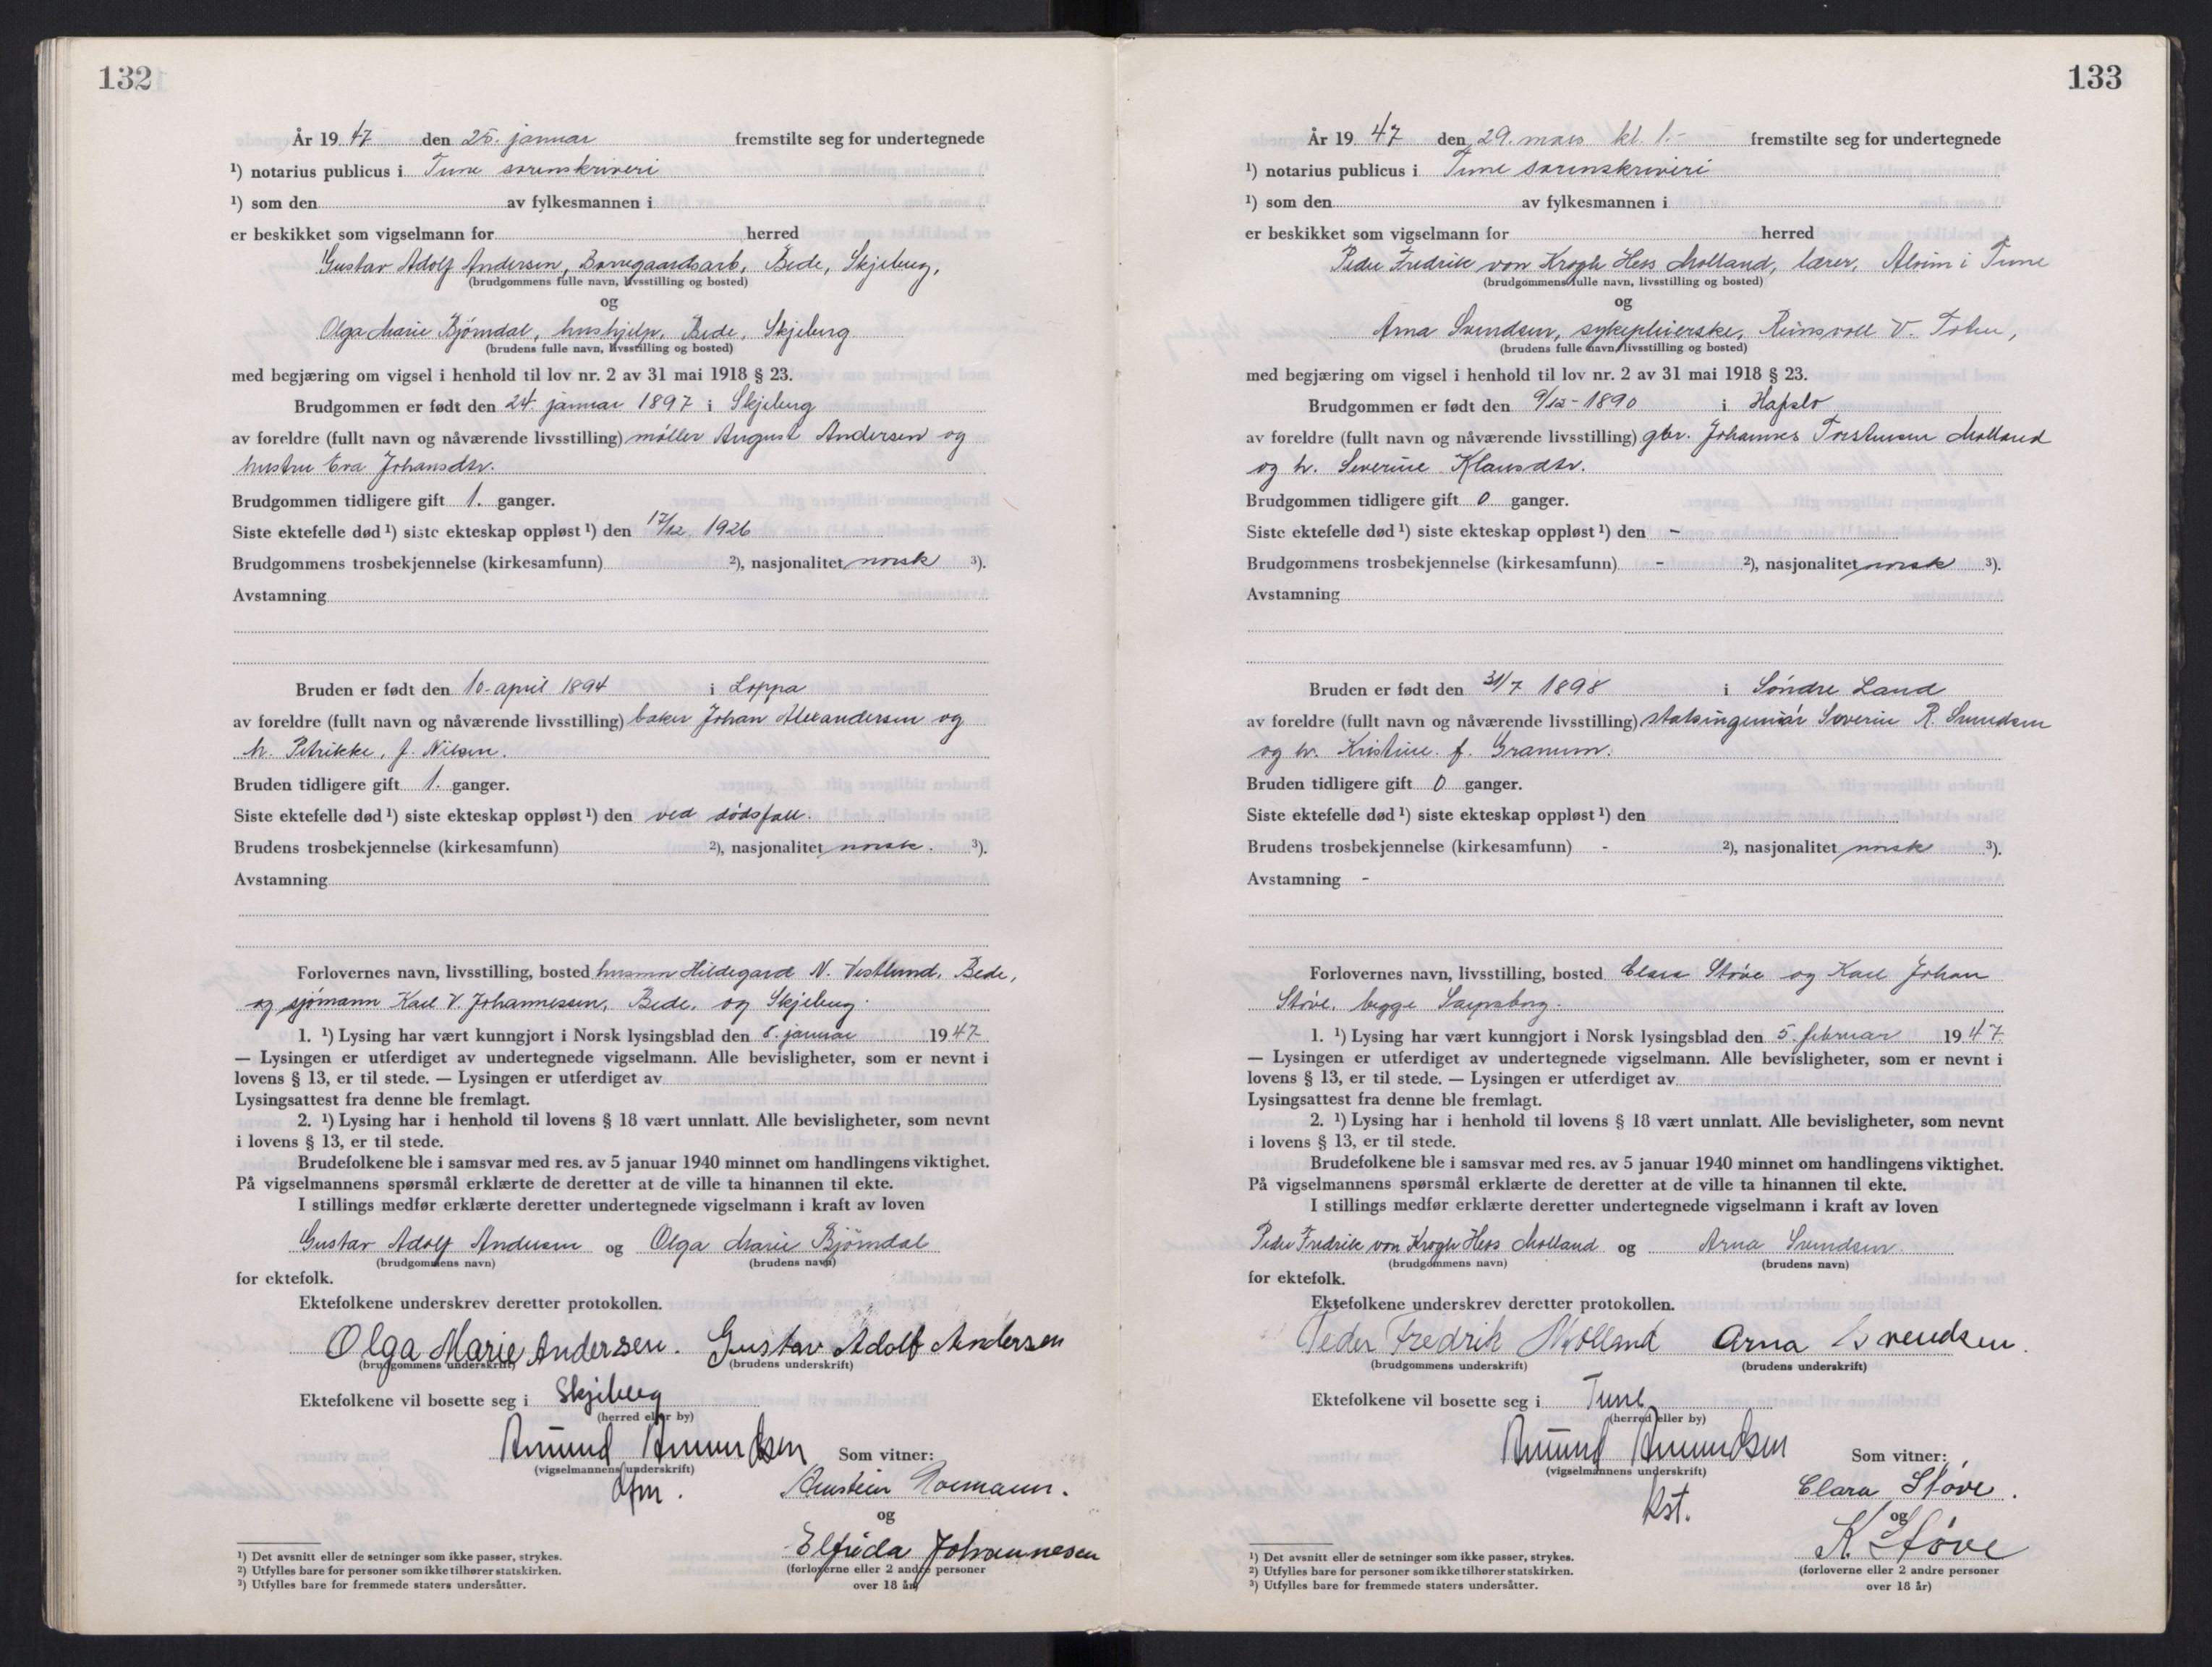 132
År 1947 den 25. januar fremstilte seg for undertegnede
¹) notarius publicus i Tune sorenskriveri
¹) som den av fylkesmannen i
er beskikket som vigselmann for herred
Gustav Adolf Andersen, Borregaardsarb, Bede, Skjeberg,
(brudgommens fulle navn, livsstilling og bosted)
og
Olga Marie Bjørndal, hushjelp, Bede, Skjeberg
(brudens fulle navn, livsstilling og bosted)
med begjæring om vigsel i henhold til lov nr. 2 av 31 mai 1918 § 23.
Brudgommen er født den 24. januar 1897 i Skjeberg
av foreldre (fullt navn og nåværende livsstilling) møller August Andersen og
hustru Eva Johansdtr.
Brudgommen tidligere gift 1. ganger.
Siste ektefelle død ¹) siste ekteskap oppløst ¹) den 17/12 1926
Brudgommens trosbekjennelse (kirkesamfunn) ²), nasjonalitet norsk ³).
Avstamning
Bruden er født den 10. april 1894 i Loppa
av foreldre (fullt navn og nåværende livsstilling) baker Johan Alexandersen og
h. Petrikke, f. Nilsen.
Bruden tidligere gift 1. ganger.
Siste ektefelle død ¹) siste ekteskap oppløst ¹) den ved dødsfall.
Brudens trosbekjennelse (kirkesamfunn) ²), nasjonalitet norsk. ³).
Avstamning
Forlovernes navn, livsstilling, bosted Hildegard N. Vestlund, Bede,
og sjømann Karl V. Johannessen, Bede, og Skjeberg.
1. ¹) Lysing har vært kunngjort i Norsk lysingsblad den 8. januar 1947
— Lysingen er utferdiget av undertegnede vigselmann. Alle bevisligheter, som er nevnt i
lovens § 13, er til stede. — Lysingen er utferdiget av
Lysingsattest fra denne ble fremlagt.
2. ¹) Lysing har i henhold til lovens § 18 vært unnlatt. Alle bevisligheter, som nevnt
i lovens § 13, er til stede.
Brudefolkene ble i samsvar med res. av 5 januar 1940 minnet om handlingens viktighet.
På vigselmannens spørsmål erklærte de deretter at de ville ta hinannen til ekte.
I stillings medfør erklærte deretter undertegnede vigselmann i kraft av loven
Gustav Adolf Andersen og Olga Marie Bjørndal
(brudgommens navn) (brudens navn)
for ektefolk.
Ektefolkene underskrev deretter protokollen.
Olga Marie Andersen. Gustav Adolf Andersen
(brudgommens underskrift) (brudens underskrift)
Ektefolkene vil bosette seg i Skjeberg
(herred eller by)
Amund Amundsen Som vitner:
(vigselmannens underskrift)
dfm.
Normann.
og
Elfrida Johannesen
(forloverne eller 2 andre personer
over 18 år)
¹) Det avsnitt eller de setninger som ikke passer, strykes.
²) Utfylles bare for personer som ikke tilhører statskirken.
³) Utfylles bare for fremmede staters undersåtter.
133
År 1947 den 29. mars kl. 1.- fremstilte seg for undertegnede
¹) notarius publicus i Tune sorenskriveri
¹) som den av fylkesmannen i
er beskikket som vigselmann for herred
Peder Fredrik von Krogh Hess Molland, lærer, Alvim i Tune
(brudgommens fulle navn, livsstilling og bosted)
og
Arna Svendsen, sykepleierske, Reinsvoll V. Toten,
(brudens fulle navn, livsstilling og bosted)
med begjæring om vigsel i henhold til lov nr. 2 av 31 mai 1918 § 23.
Brudgommen er født den 9/12-1890 i Hafslo
av foreldre (fullt navn og nåværende livsstilling) gbr. Johannes Torstensen Molland
og h. Severine Klausdtr.
Brudgommen tidligere gift 0 ganger.
Siste ektefelle død ¹) siste ekteskap oppløst ¹) den -
Brudgommens trosbekjennelse (kirkesamfunn) - ²), nasjonalitet norsk ³).
Avstamning
Bruden er født den 31/7 1898 i Søndre Land
av foreldre (fullt navn og nåværende livsstilling) statsingeniør Soverin R. Svendsen
og h. Kristine f. Granum.
Bruden tidligere gift 0 ganger.
Siste ektefelle død ¹) siste ekteskap oppløst ¹) den
Brudens trosbekjennelse (kirkesamfunn) - ²), nasjonalitet norsk ³).
Avstamning -
Forlovernes navn, livsstilling, bosted Clara Støve og Karl Johan
Støve, begge Sarpsborg.
1. ¹) Lysing har vært kunngjort i Norsk lysingsblad den 5. februar 1947
— Lysingen er utferdiget av undertegnede vigselmann. Alle bevisligheter, som er nevnt i
lovens § 13, er til stede. — Lysingen er utferdiget av
Lysingsattest fra denne ble fremlagt.
2. ¹) Lysing har i henhold til lovens § 18 vært unnlatt. Alle bevisligheter, som nevnt
i lovens § 13, er til stede.
Brudefolkene ble i samsvar med res. av 5 januar 1940 minnet om handlingens viktighet.
På vigselmannens spørsmål erklærte de deretter at de ville ta hinannen til ekte.
I stillings medfør erklærte deretter undertegnede vigselmann i kraft av loven
Peder Fredrik von Krogh Hess Molland og Arna Svendsen.
(brudgommens navn) (brudens navn)
for ektefolk.
Ektefolkene underskrev deretter protokollen.
Peder Fredrik Molland Arna Svendsen.
(brudgommens underskrift) (brudens underskrift)
Ektefolkene vil bosette seg i Tune
(herred eller by)
Amund Amundsen Som vitner:
(vigselmannens underskrift)
kst.
Clara Støve.
og
K. Støve
(forloverne eller 2 andre personer
over 18 år)
¹) Det avsnitt eller de setninger som ikke passer, strykes.
²) Utfylles bare for personer som ikke tilhører statskirken.
³) Utfylles bare for fremmede staters undersåtter.